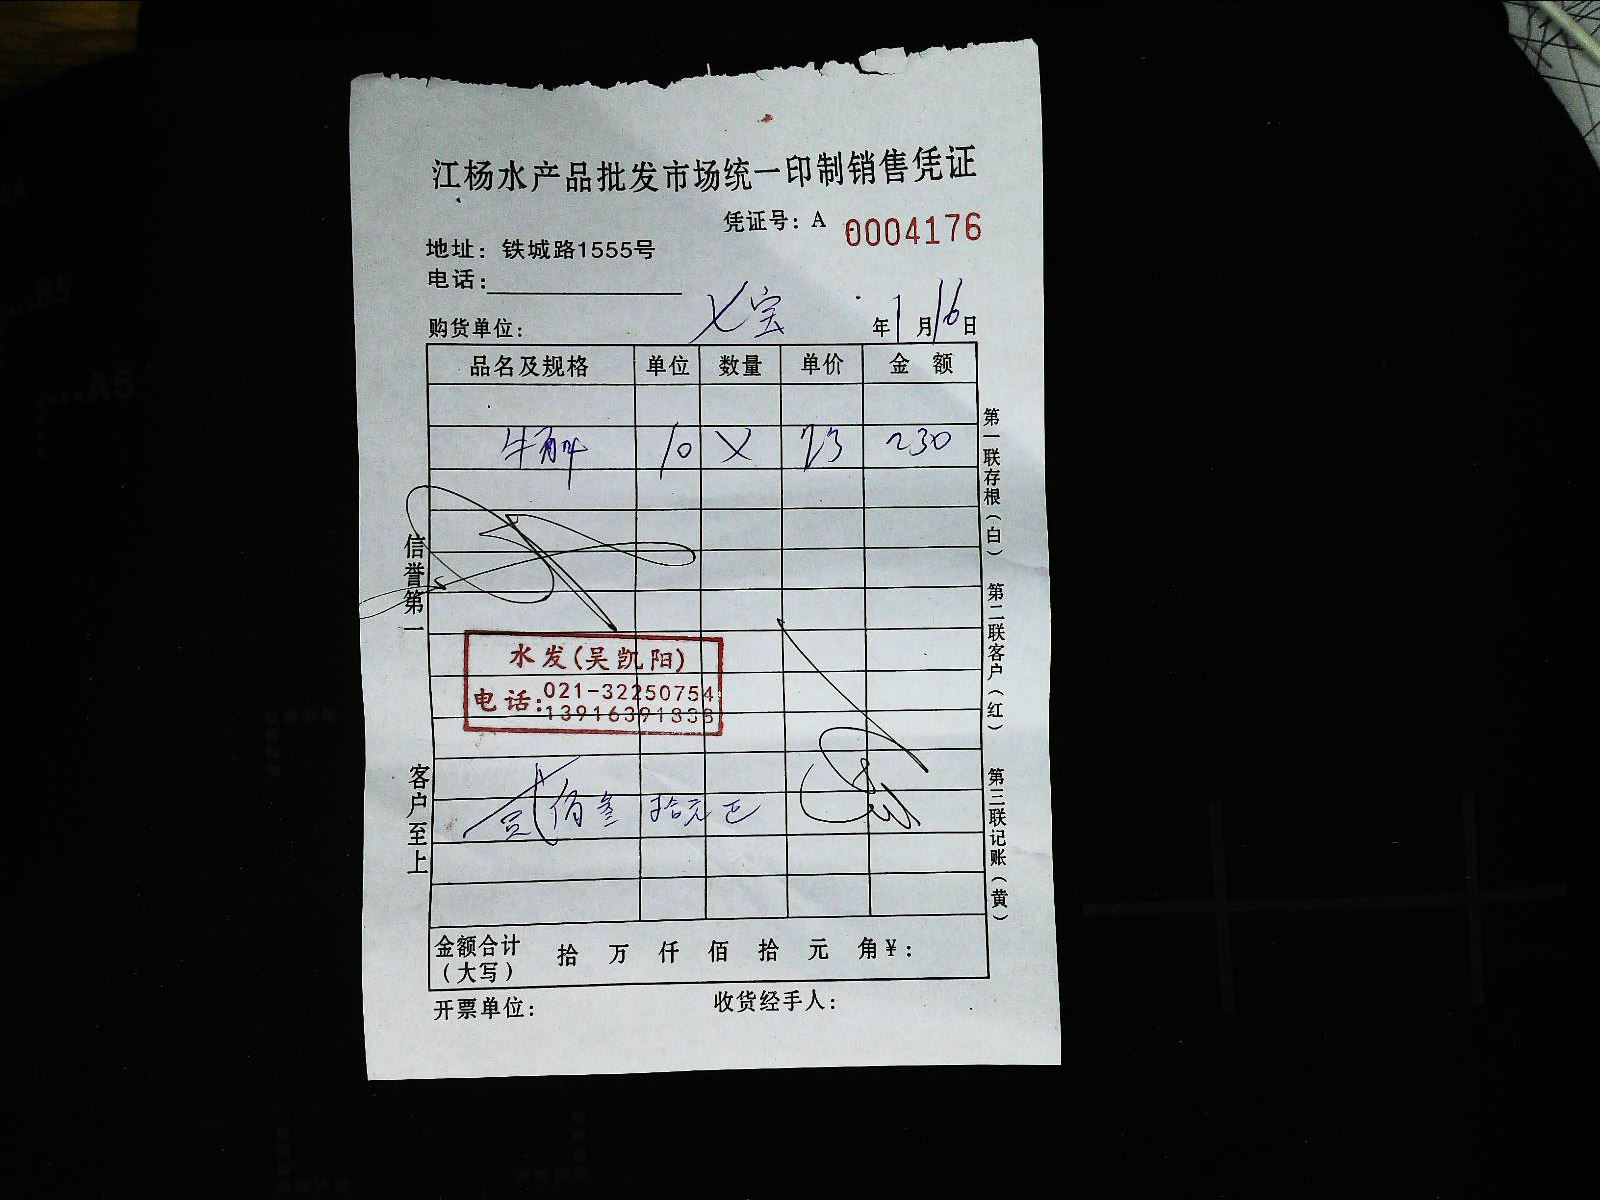 江杨水产品批发市场统一印制销售凭证
凭证号：A 0004176
地址：铁城路1555号
电话：
购货单位： 七宝 年1月16日
品名及规格 单位 数量 单价 金 额
牛 10 X 23 230
水发(吴凯阳)
电话:021-32250754
13916391838
贰佰叁拾元正
金额合计 拾 万 仟 佰 拾 元 角¥：
（大写）
开票单位： 收货经手人：
信誉第一
客户至上
第一联存根（白）
第二联客户（红）
第三联记账（黄）